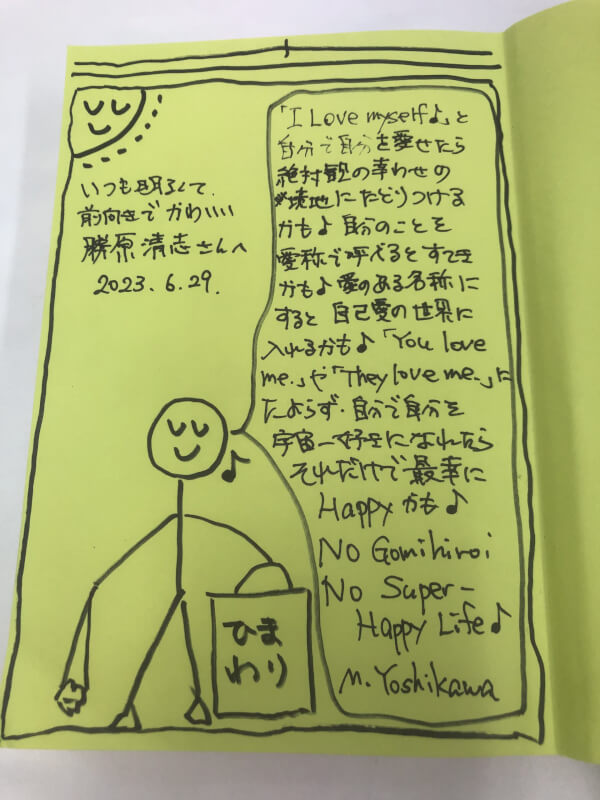 いつも明るくて、
前向きでかわいい
勝原清志さんへ
2023.6.29.
「I Love myself♪」と
自分で自分を愛せたら
絶対観の幸わせの
境地にたどりつける
かも♪自分のことを
愛称で呼べるとすてき
かも♪愛のある名称に
すると自己愛の世界に
入れるかも♪「You love
me.」や「They love me.」に
たよらず、自分で自分を
宇宙一好きになれたら
それだけで最幸に
Happyかも♪
No Gomihiroi
No Super-
Happy Life♪
M. Yoshikawa
♪
ひま
わり